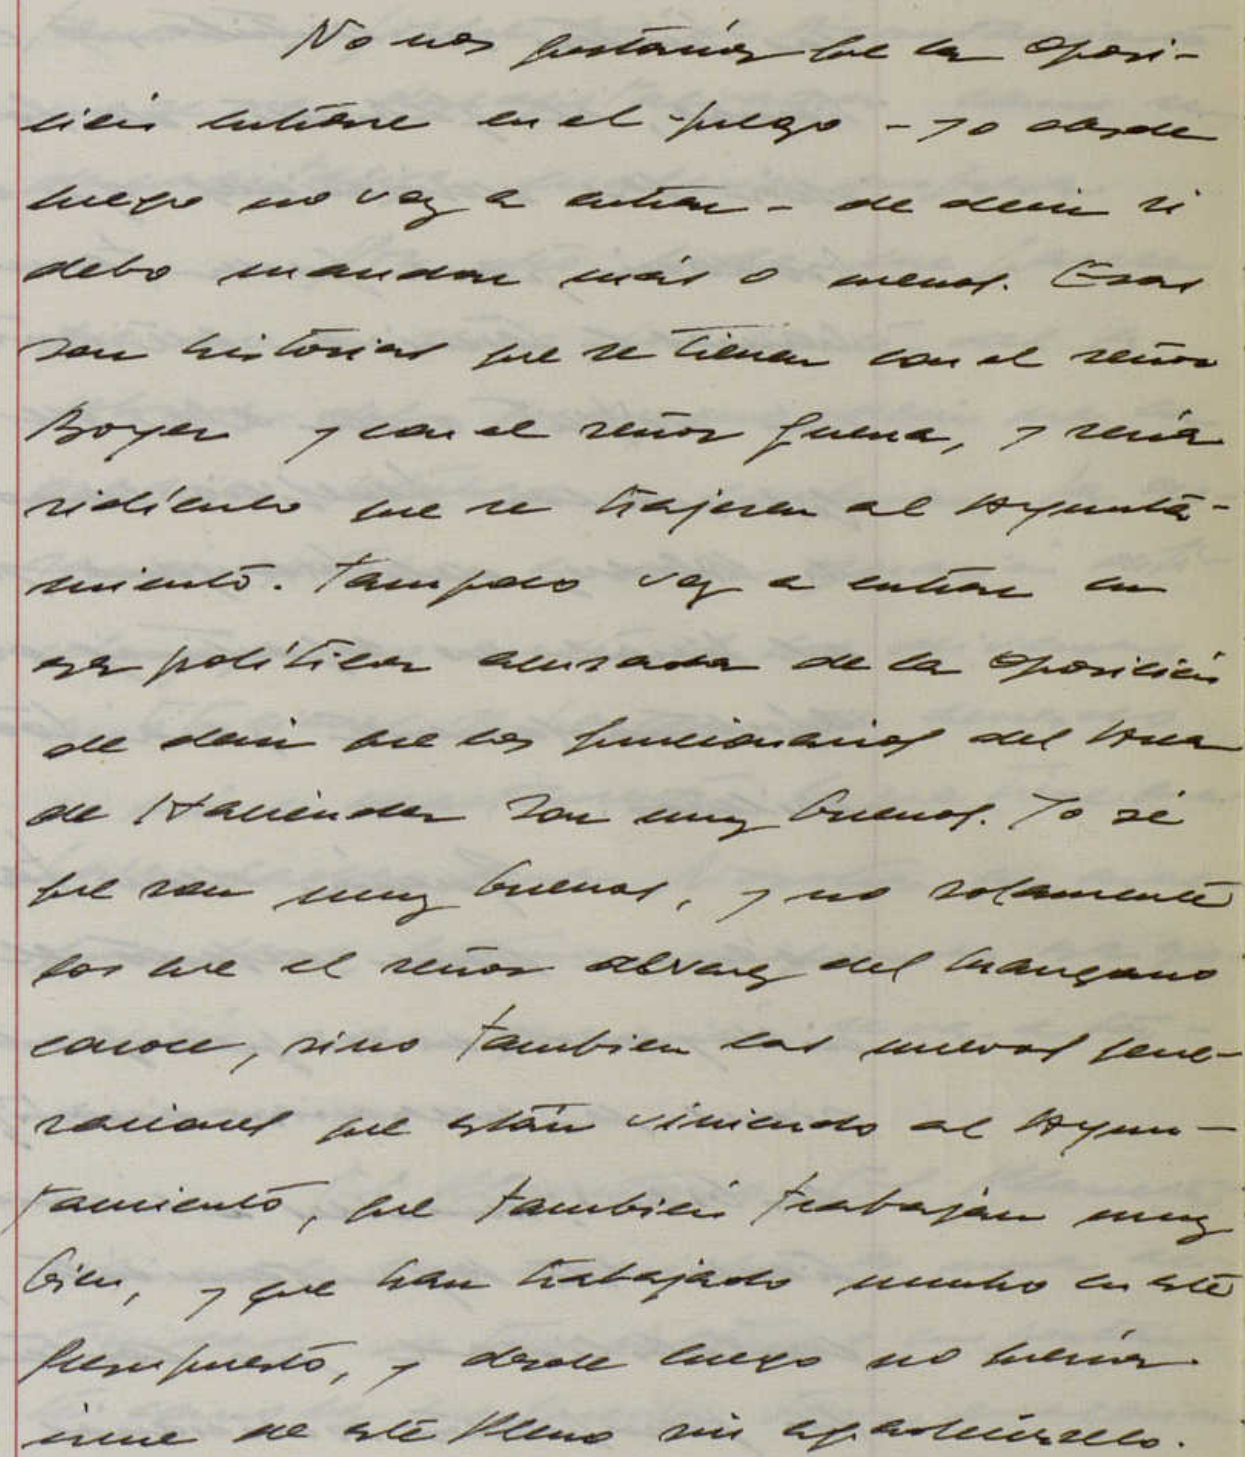 No nos gustaría que la oposi-
ción entrase en el juego - yo desde
luego no voy a entrar - de decir si
debo mandar más o menos. Esas
son historias que se tienen con el señor
Boyer y con el señor Guerra, y sería
ridículo que se trajeran al Ayunta-
miento. Tampoco voy a entrar en
esa política acusada de la oposición
de decir que los funcionarios del Area
de Hacienda son muy buenos. Yo sé
que son muy buenos, y no solamente
los que el señor Alvarez del Manzano
conoce, sino tambien las nuevas gene-
raciones que están viniendo al Ayun-
tamiento, que también trabajan muy
bien, y que han trabajado mucho en este
Presupuesto, y desde luego no querría
irme de este Pleno sin agradecérselo.